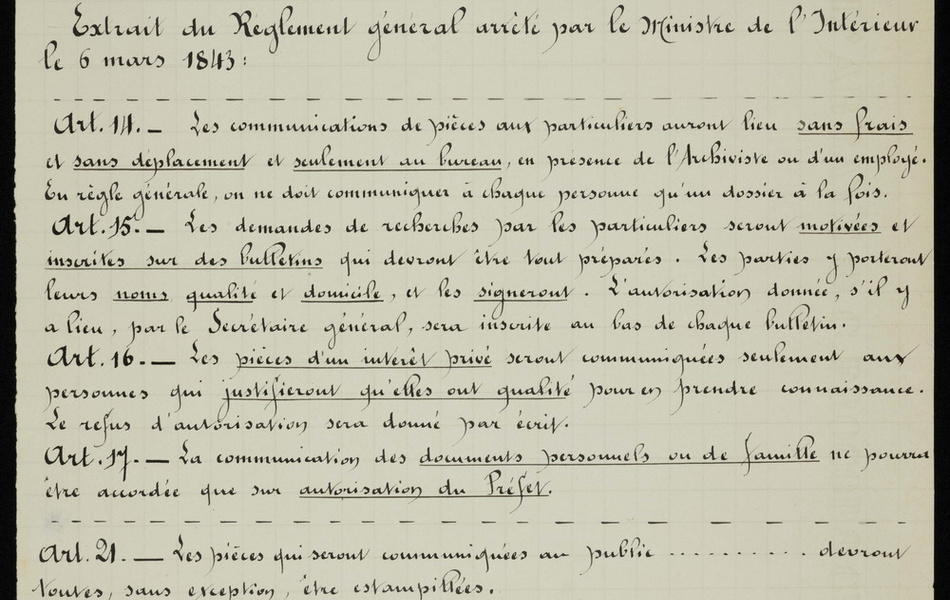 Extrait du Réglement général arrêté par le Ministre de l'Intérieur
le 6 mars 1843:
Art. 14. — Les communications de pièces aux particuliers auront lieu sans frais
et sans déplacement et seulement au bureau, en présence de l'Archiviste ou d'un employé.
En règle générale, on ne doit communiquer à chaque personne qu'un dossier à la fois.
Art. 15. — Les demandes de recherches par les particuliers seront motivées et
inscrites sur des bulletins qui devront être tout préparés. Les parties y porteront
leurs noms qualité et domicile, et les signeront. L'autorisation donnée, s'il y
a lieu, par le Secrétaire général, sera inscrite au bas de chaque bulletin.
Art. 16. — Les pièces d'un intérêt privé seront communiquées seulement aux
personnes qui justifieront qu'elles ont qualité pour en prendre connaissance.
Le refus d'autorisation sera donné par écrit.
Art. 17. — La communication des documents personnels ou de famille ne pourra
être accordée que sur autorisation du Préfet.
Art. 21. — Les pièces qui seront communiquées au public .......... devront
toutes, sans exception, être estampillées.